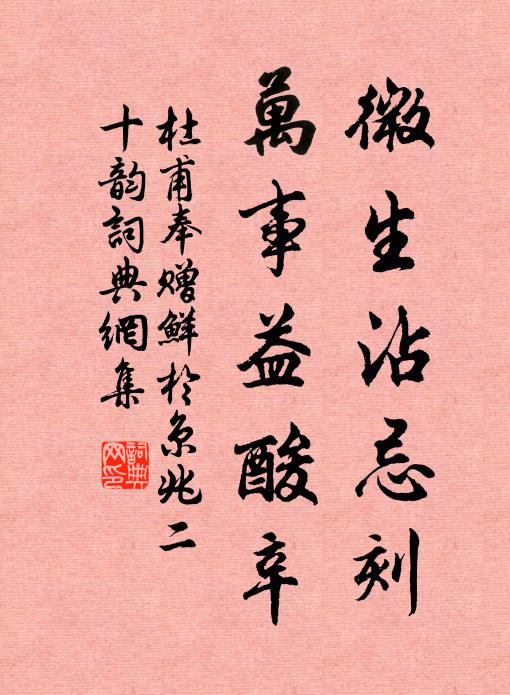 微生沾忌刻
萬事益酸辛
杜甫奉赠鮮於京兆二
十韵詞典網集
詞典
网印